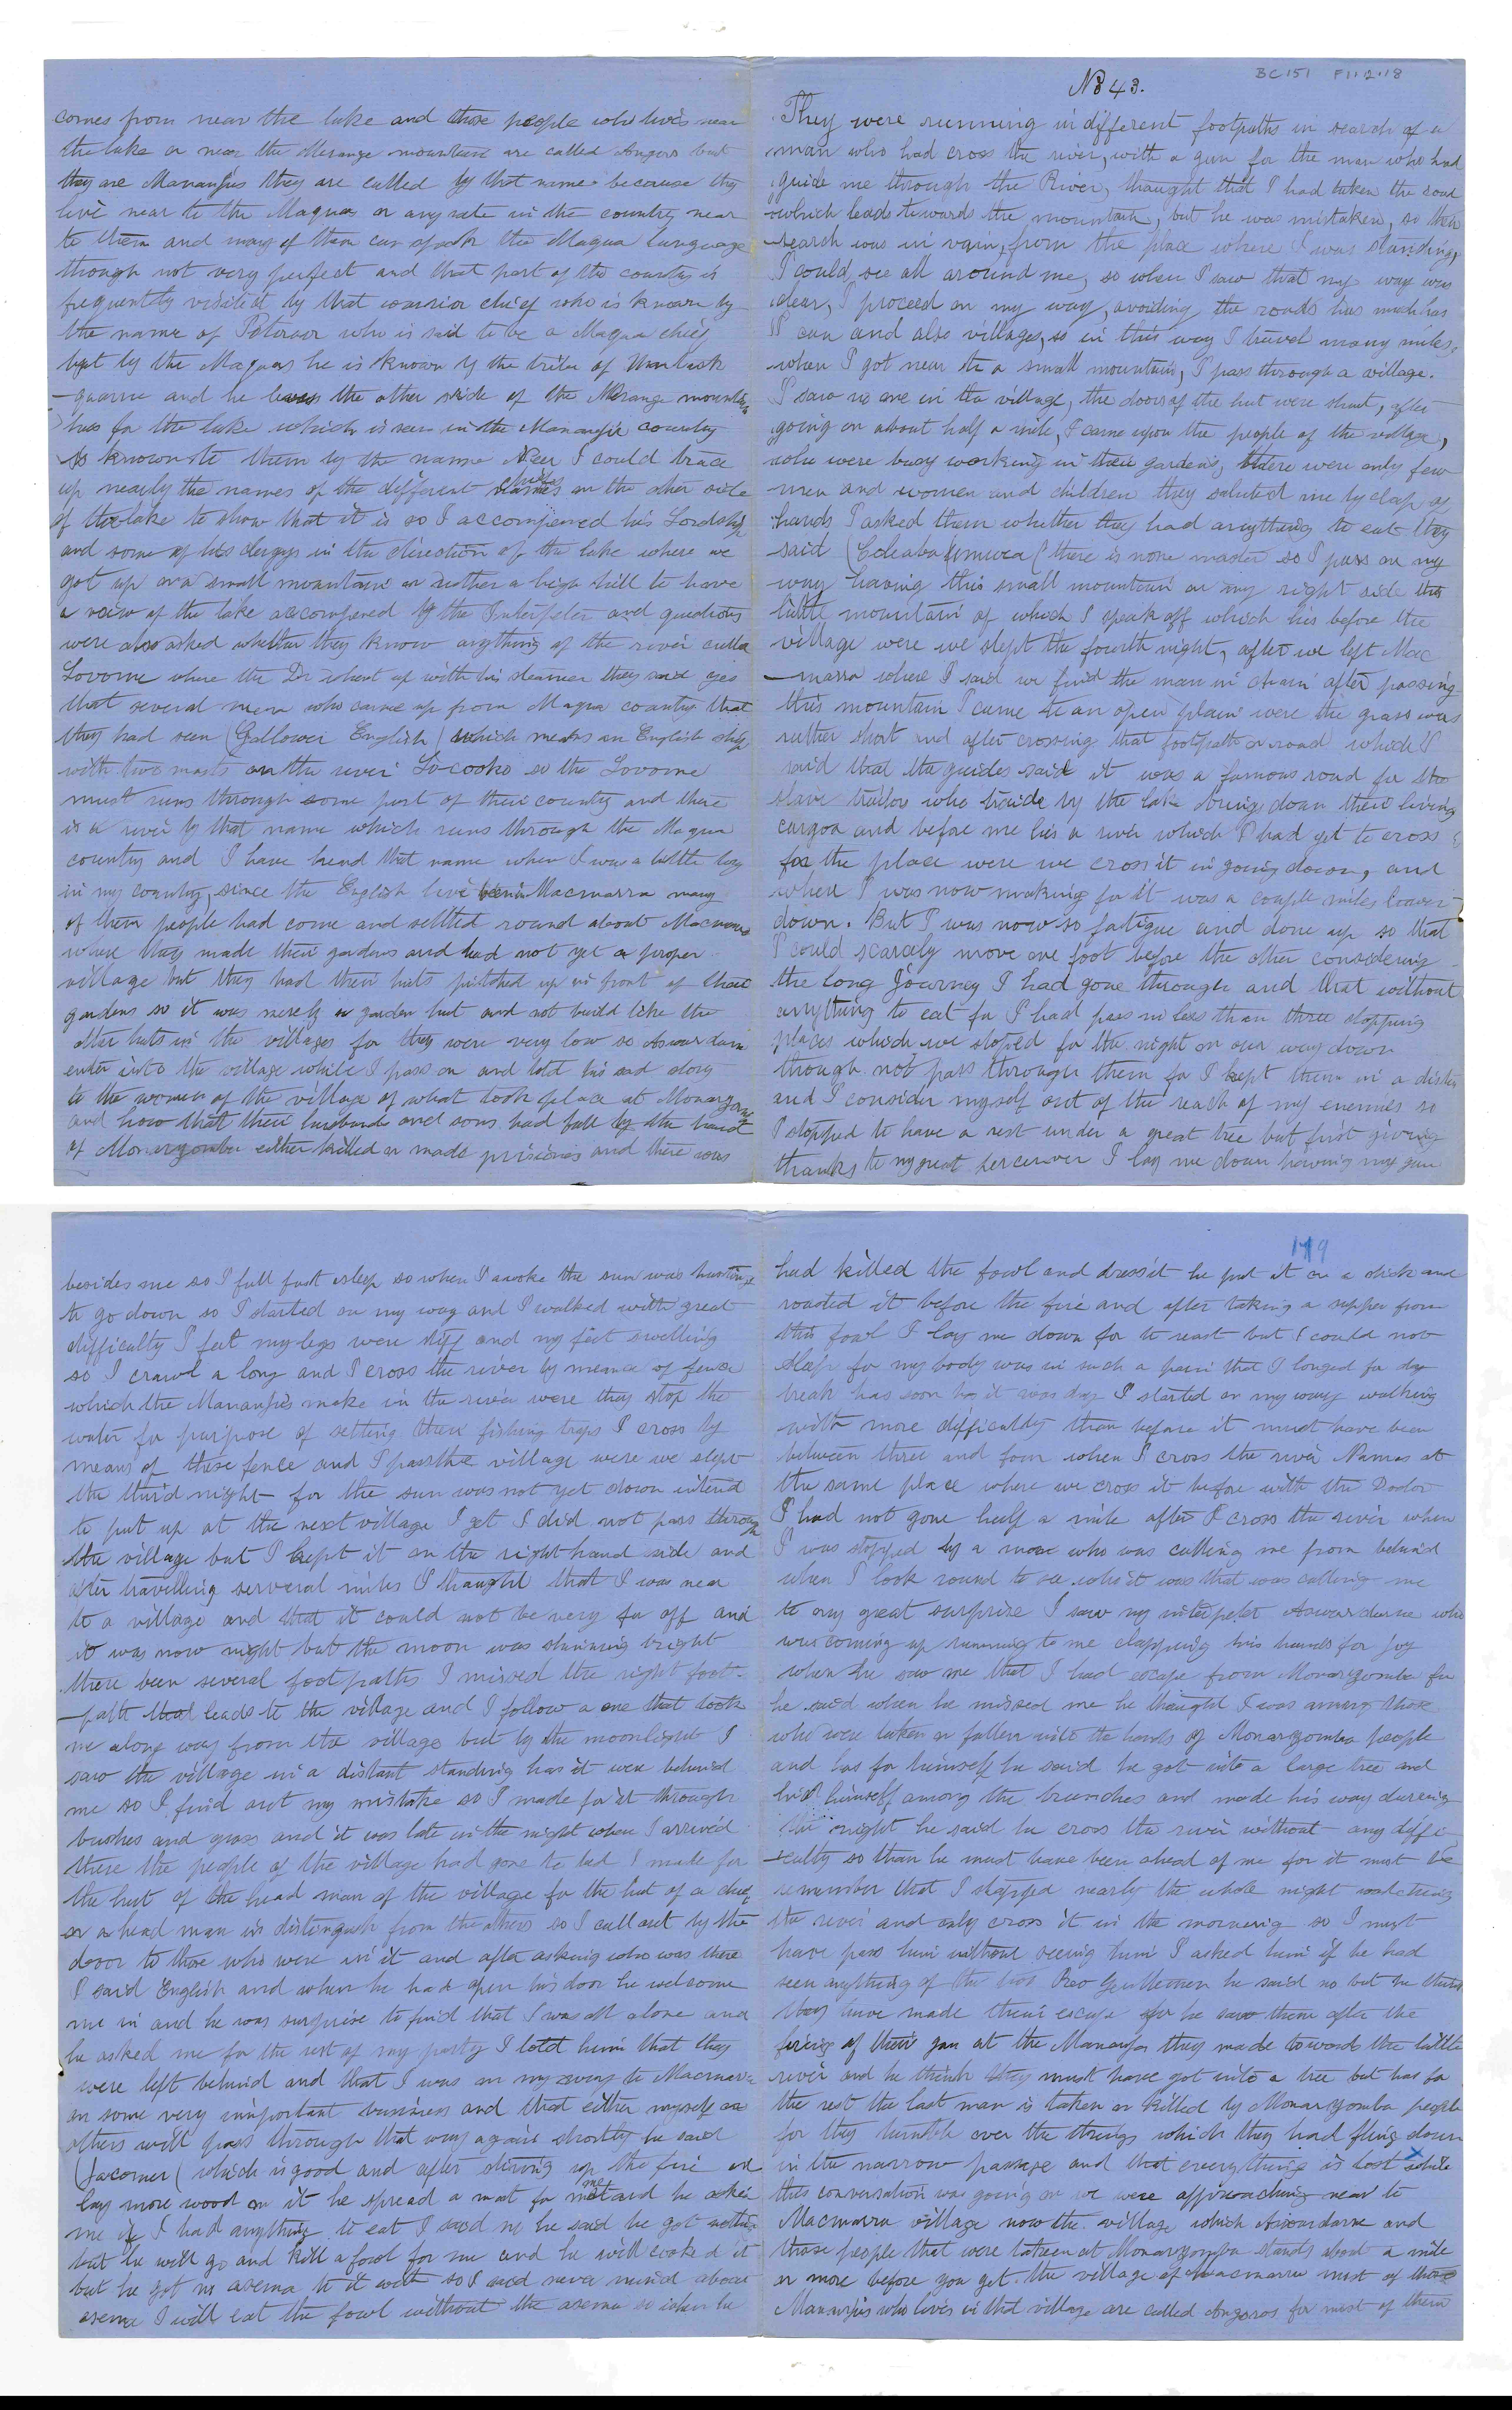 BC151 F11.2.18
No 43.
They were running in different footpaths in search of a
man who had cross the river, with a gun for the man who had
guide me through the River, thaught that I had taken the road
which leads towards the mountain, but he was mistaken, so their
search was in vain, from the place where I was standing,
I could see all around me, so when I saw that my way was
clear, I proceed on my way, avoiding the roads has much has
I can and also villages, so in this way I travel many miles,
when I got near to a small mountain, I pass through a village.
I saw no one in the village, the doors of the hut were shut, after
going on about half a mile, I came upon the people of the village,
who were busy working in their gardens, there were only few
men and women and children they saluted me by clap of
hands I asked them whether they had anything to eat they
said (Coleaba there is none master so I pass on my
way having this small mountain on my right side this
little mountain of which I speak off which lies before the
village were we slept the fourth night, after we left Mac
-marra where I said we find the man in chain after passing
this mountain I came to an open plain were the grass was
rather short and after crossing that footpath or road which I
said that the guides said it was a famous road for the
slave traders who traide by the lake bring down their living
cargoa and before me lies a river which I had yet to cross
for the place were we cross it in going down, and
where I was now making for it was a couple miles lower
down. But I was now so fatigue and done up so that
I could scarcely move one foot before the other considering
the long Journey I had gone through and that without
anything to eat for I had pass no less than three stopping
places which we stoped for the night on our way down
though not pass through them for I kept them in a distan
and I consider myself out of the reach of my enemies so
I stopped to have a rest under a great tree but first giving
thanks to my great perserver I lay me down having my gun
besides me so I fall fast asleep so when I awoke the sun was hastning
to go down so I started on my way and I walked with great
difficulty I felt my legs were stiff and my feet swelling
so I crawl a long and I cross the river by means of fence
which the Mananjas make in the river were they stop the
water for purpose of setting their fishing traps I cross by
means of these fence and I pass the village were we slept
the third night for the sun was not yet down intend
to put up at the next village I get I did not pass through
the village but I kept it on the right hand side and
after travelling serveral miles I thaught that I was near
to a village and that it could not be very far off and
it was now night but the moon was shinning bright
there been several footpaths I missed the right foot-
-path that leads to the village and I follow a one that took
me along way from the village but by the moonlight I
saw the village in a distant standing has it were behind
me so I find out my mistake so I made for it through
bushes and grass and it was late in the night when I arrived
there the people of the village had gone to bed I made for
the hut of the head man of the village for the hut of a chief
or a head man is distinguish from the others so I call out by the
door to those who were in it and after asking who was there
I said English and when he had open his door he welcome
me in and he was surprise to find that I was all alone and
he asked me for the rest of my party I told him that they
were left behind and that I was on my way to Macmarra
on some very important business and that either myself or
others will pass through that way again shortly he said
(Jacomer ( which is good and after stirring up the fire and
lay more wood on it he spread a mat for me and he asked
me if I had anything to eat I said no he said he got nothing
but he will go and kill a fowl for me and he will cooked it
but he got no asema to it with so I said never mind about
asema I will eat the fowl without the asema so when he
179
had killed the fowl and dress it he put it on a stick and
roasted it before the fire and after taking a supper from
this fowl I lay me down for to reast but I could not
sleep for my body was in such a pain that I longed for day
break has soon has it was day I started on my way walking
with more difficulty than before it must have been
between three and four when I cross the river Namas at
the same place where we cross it before with the Doctor
I had not gone half a mile after I cross the river when
I was stopped by a man who was calling me from behind
when I look round to see who it was that was calling me
to my great surprise I saw my interpeter Aswardarne who
was coming up running to me clapping his hands for joy
when he saw me that I had escape from Monargomba for
he said when he missed me he thaught I was among those
who were taken or fallen into the hands of Monargomba people
and has for himself he said he got into a large tree and
hid himself among the brunches and made his way dureing
the night he said he cross the river without any diffi
-culty so than he must have been ahead of me for it must be
remember that I stopped nearly the whole night watching
the river and only cross it in the morning so I must
have pass him without seeing him I asked him if he had
seen anything of the two Reo Gentlemen he said no but he think
they have made their escape for he saw them after the
fireing of their gun at the Mananjas they made towards the little
river and he think they must have got into a tree but has for
the rest the last man is taken or killed by Monargomba people
for they tumble over the things which they had fling down
in the narrow passage and that everything is lost while
this conversation was going on we were approaching near to
Macmarra village now the village which Aswardarne and
those people that were taken at Monargomba stands about a mile
or more before you get the village of Macmarra most of those
Mananjas who lives in that village are called Angoros for most of them
comes from near the lake and those people who lives near
the lake or near the Merange mountain are called Angoros but
they are Mananjas they are called by that name because they
live near to the Maquas or any rate in the country near
to them and many of them can speak the Maqua Language
though not very perfect and that part of the country is
frequently visited by that warrior chief who is known by
the name of who is said to be a Maqua chief
but by the Maquas he is known by the tribe of
-guarra and he lives the other side of the Merange mountain
has for the lake which is seen in the Mananja country
is known to them by the name I could trace
up nearly the names of the different tribes on the other side
of the lake to show that it is so I accompened his Lordship
and some of his clergys in the direction of the lake where we
got up on a small mountain or rather a high hill to have
a view of the lake accompened by the Interpeter and questions
were also asked whether they know anything of the river called
Lovome where the Dr whent up with his steamer they said yes
that several men who came up from Maqua country that
they had seen (Gallower English ( which means an English ship
with two masts on the river Locooko so the Lovome
must runs through some part of their country and there
is a river by that name which runs through the Maqua
country and I have heard that name when I was a little boy
in my country, since the English live in Macmarra many
of them people had come and settled round about Macmarra
where they made their gardens and had not yet a proper
village but they had their huts pitched up in front of their
gardens so it was merely a garden hut and not build like the
other huts in the villages for they were very low so Aswardarne
enter into the village while I pass on and told his sad story
to the women of the village of what took place at Monargomba
and how that their husbands and sons had fall by the hand
of Monargomba either killed or made prisiones and there was